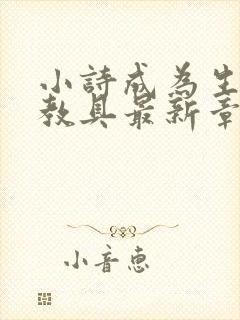 小詩成為生
教具最新章
小音惠